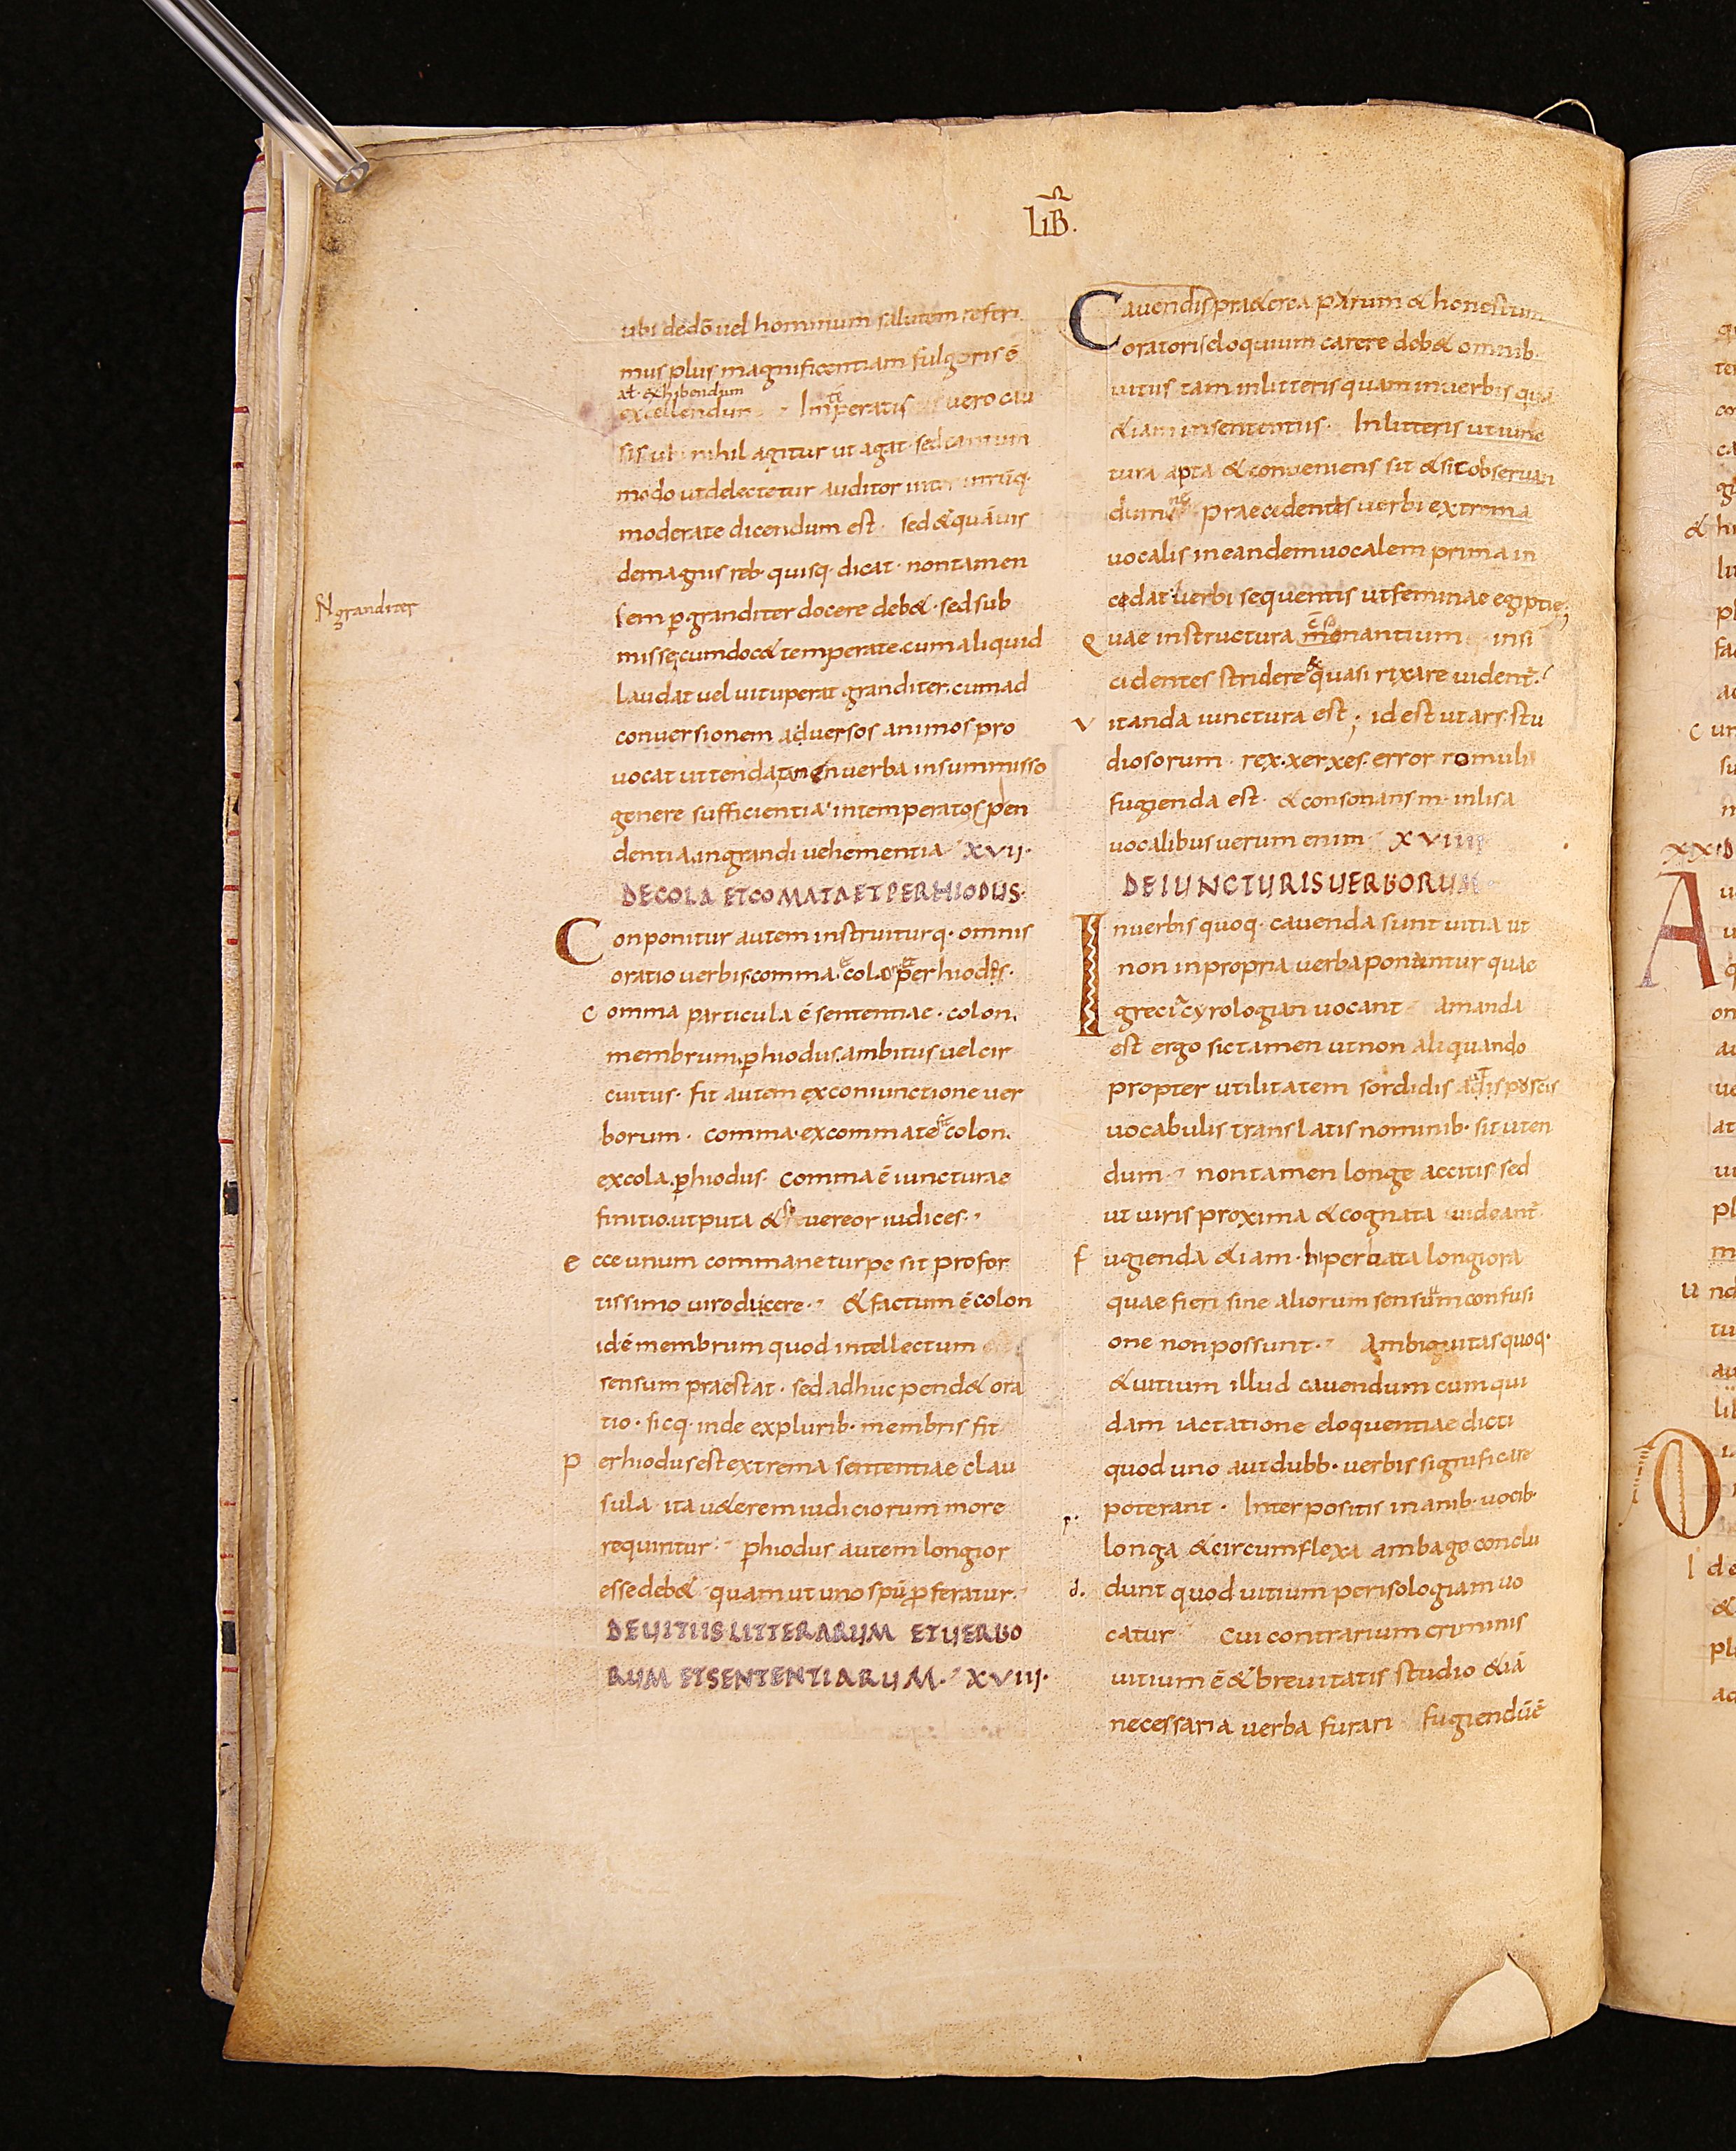 LIB.
ubi dedō uel hominum salutem referi
mus plus magnificentiam fulgoris ē
at exhibendum
excellendum Imperatis uero cau
sis ubi nihil agitur ut agat sed tantum
modo ut delectetur auditor inter utrūq·
moderate dicendum est· sed & quāuis
de magnis reb· quisq· dicat· non tamen
semp granditer docere deb&· sed sub
N granditer
misse cum doc& temperate cum aliquid
laudat uel uituperat granditer cum ad
conuersionem aduersos animos pro
uocat utenda tamen uerba in summisso
genere sufficientia in temperato spen
dentia in grandi uehementia XVII·
DE COLA ET COMATA ET PERHIODUS·
Conponitur autem instruiturq· omnis
oratio uerbis comma & colo & perhiodis·
comma particula ē sententiae· colon
membrum phiodus ambitus uel cir
cuitus· fit autem ex coniunctione uer
borum· comma· ex commate fit colon.
ex cola phiodus· comma ē iuncturae
finitio ut puta &si uereor iudices·
ecce unum comma ne turpe sit pro for
tissimo uiro dicere· & factum ē colon
id ē membrum quod intellectum
sensum praestat· sed adhuc pend& ora
tio· sicq· inde ex plurib· membris fit
perhiodus est extrema sententiae clau
sula ita u&erem iudiciorum more
requiritur· phiodus autem longior
esse deb& quam ut uno spū pferatur·
DE UITIIS LITTERARUM ET UERBO
RUM ET SENTENTIARUM· XVIII·
Cauendis pra&erea purum & honestum
oratoris eloquium carere deb& omnib·
uitiis tam in litteris quam in uerbis quā
&iam in sententiis· In litteris ut iunc
tura apta & conueniens sit & sit obseruan
dum ne praecedentis uerbi extrema
uocalis in eandem uocalem prima in
cedat uerbi sequentis ut feminae egiptie;
Quae instructura insi
cidentes stridere & quasi rixare uident·
Vitanda iunctura est; id est ut ars stu
diosorum· rex xerxes· error romuli
fugienda est· & consonans m· inlisa
uocalibus uerum enim XVIIII
DE IUNCTURIS UERBORUM
In uerbis quoq· cauenda sunt uitia ut
non inpropria uerba ponantur quae
greci cyrologian uocant amanda
est ergo sic tamen ut non aliquando
propter utilitatem sordidis
uocabulis translatis nominib· sit uten
dum· non tamen longe accitis sed
ut uiris proxima & cognata uideant·
fugienda &iam· hiperbata longiora
quae fieri sine aliorum sensuum confusi
one non possunt· Ambiguitas quoq·
& uitium illud cauendum cum qui
dam iactatione eloquentiae dicti
quod uno aut duob· uerbis significare
poterant· Interpositis inanib· uocib·
r·
longa & circumflexa ambage conclu
d·
dunt quod uitium perisologiam uo
catur Cui contrarium criminis
uitium ē & breuitatis studio &iā
necessaria uerba furari fugiendū ē